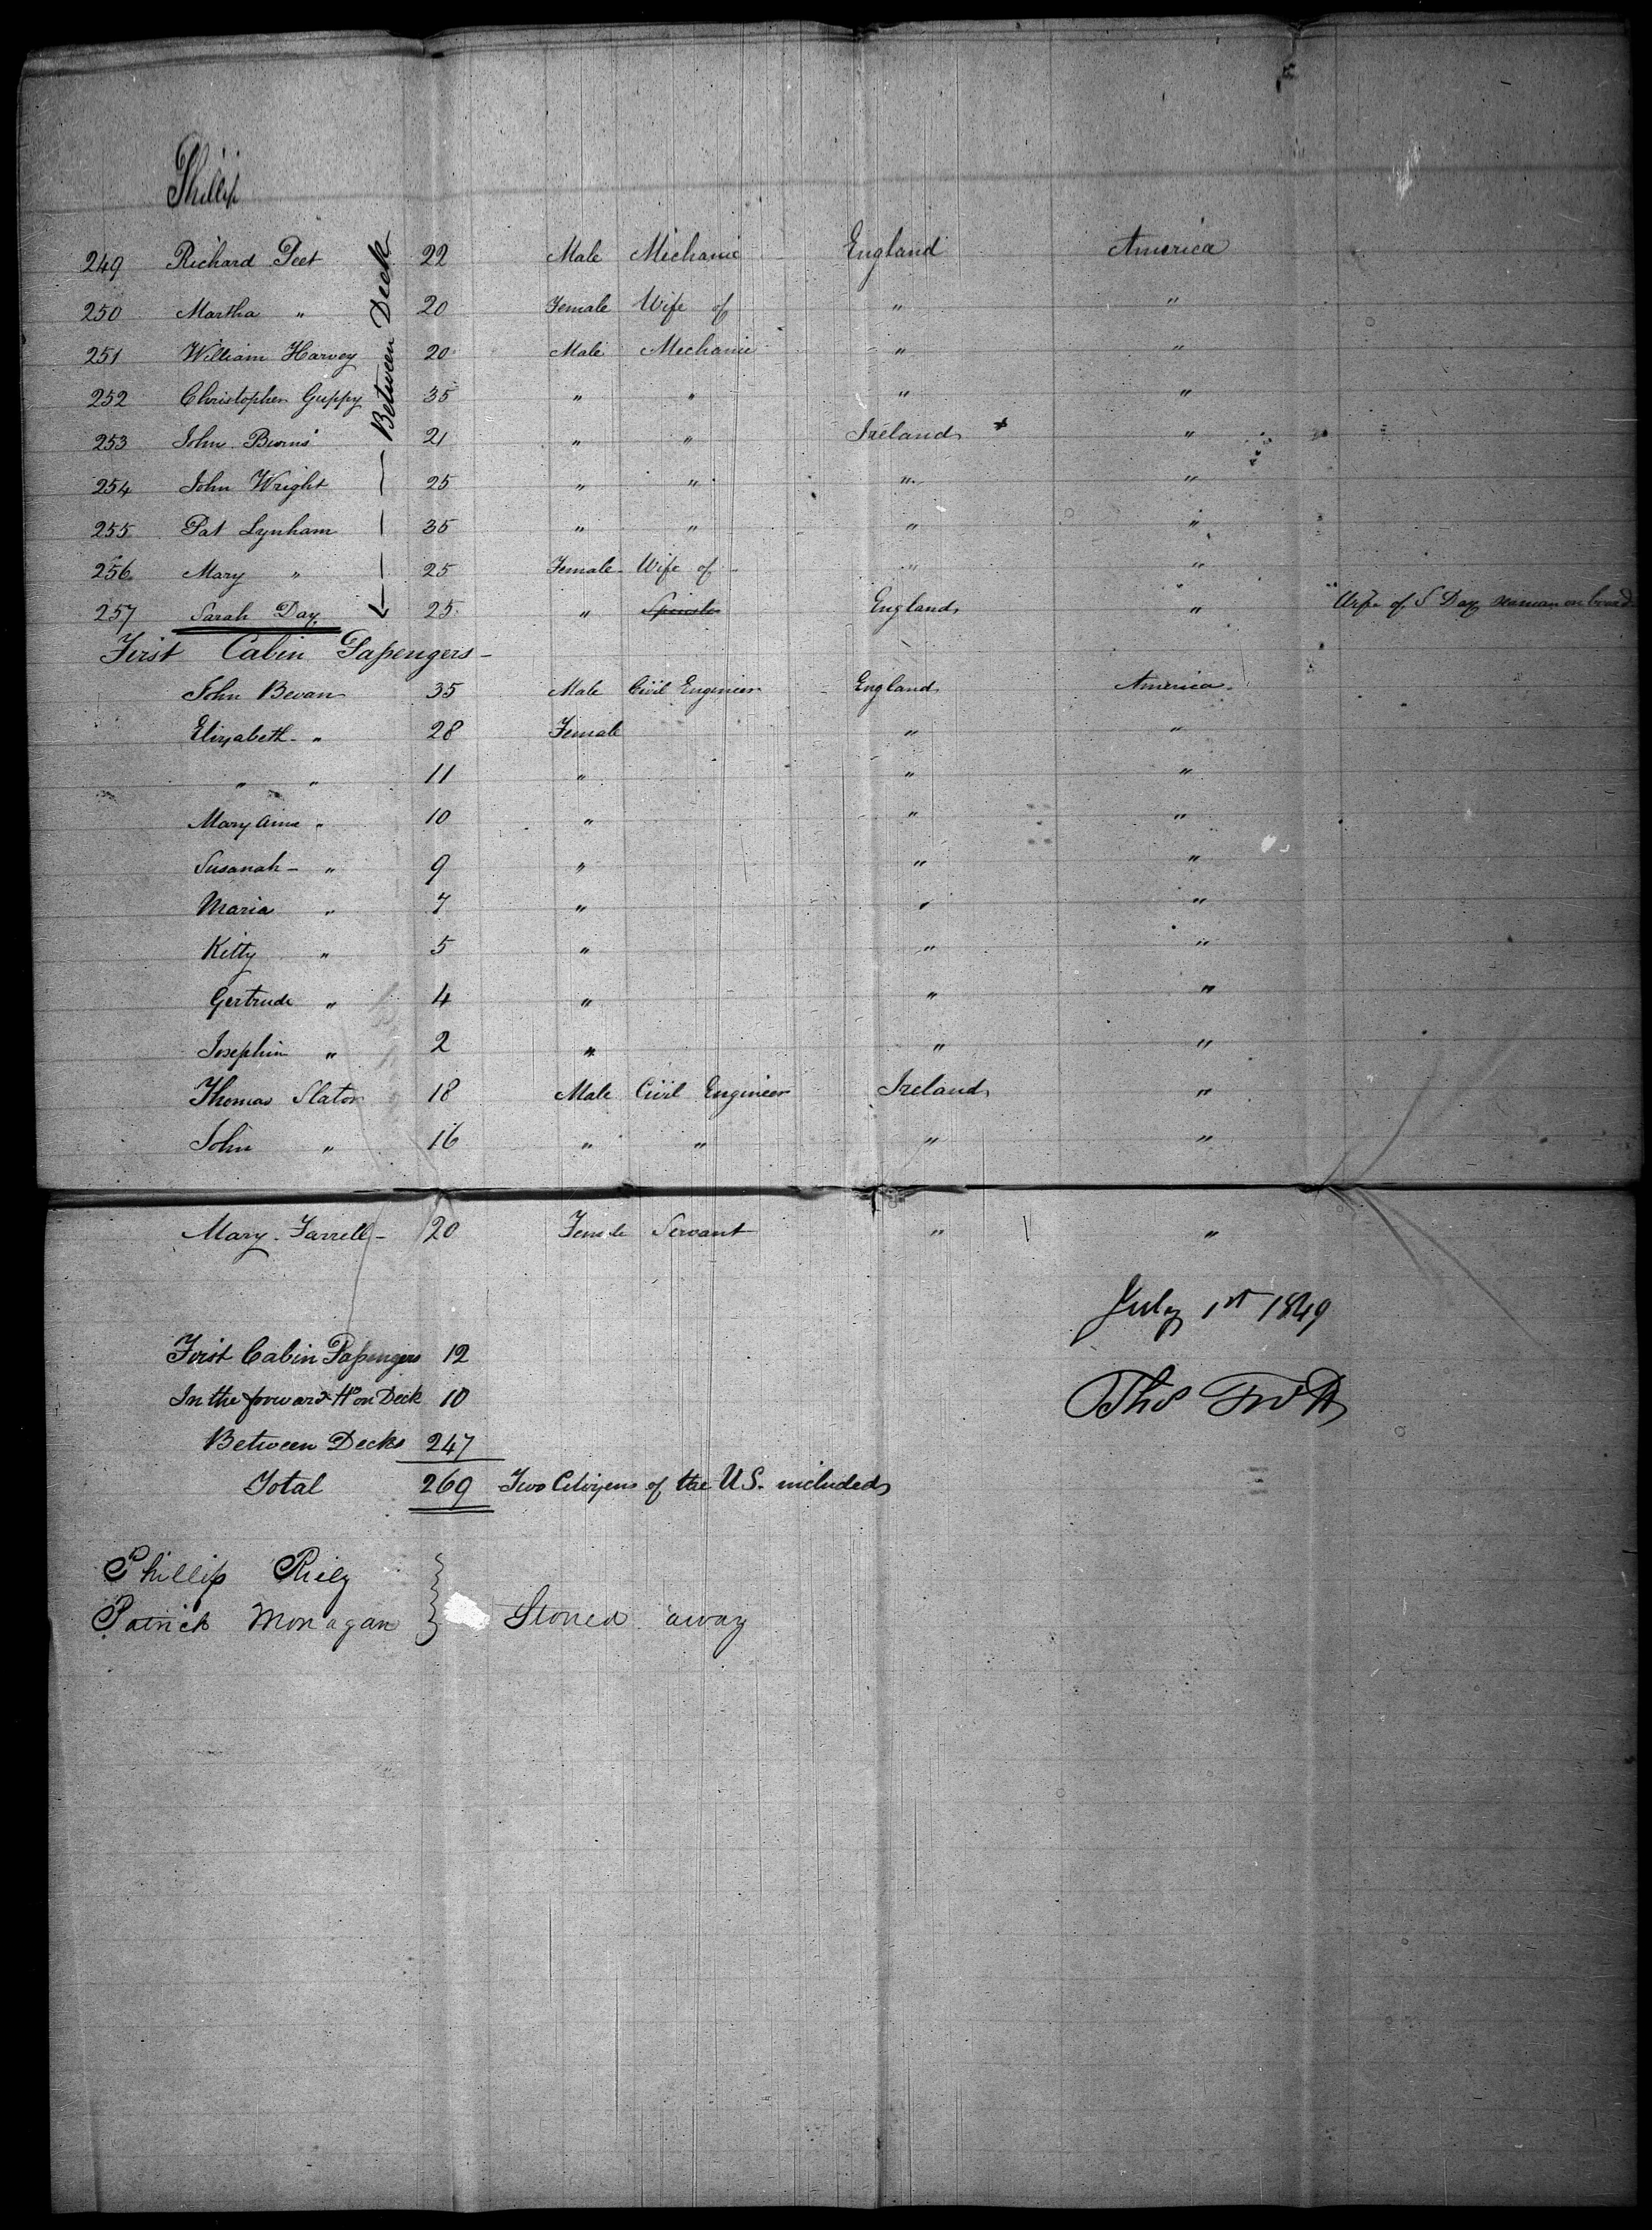 Phillip
249 Richard Peet 22 Male Mechanic England America
250 Martha " 20 Female Wife of " "
251 William Harvey 20 Male Mechanic " "
252 Christopher Guppy 35 " " " "
253 John Burns 21 " " Ireland + "
254 John Wright 25 " " " "
255 Pat Lynham 35 " " " "
256 Mary " 25 Female Wife of " "
257 Sarah Day 25 " Spinster England " Wife of S Day seaman on board
Between Deck
First Cabin Passengers
John Bevan 35 Male Civil Engineer England America
Elizabeth " 28 Female " "
" " 11 " " "
Mary Ann " 10 " " "
Susanah " 9 " " "
Maria " 7 " " "
Kitty " 5 " " "
Gertrude " 4 " " "
Josephin " 2 " " "
Thomas Slator 18 Male Civil Engineer Ireland "
John " 16 " " " "
Mary Farrell 20 Female Servant " "
July 1st 1849
First Cabin Passengers 12
In the forward Ho on Deck 10
Thos
Between Decks 247
Total 269 Two Citizens of the U.S. included
Phillip Riely
Patrick Monagan } Stoued away